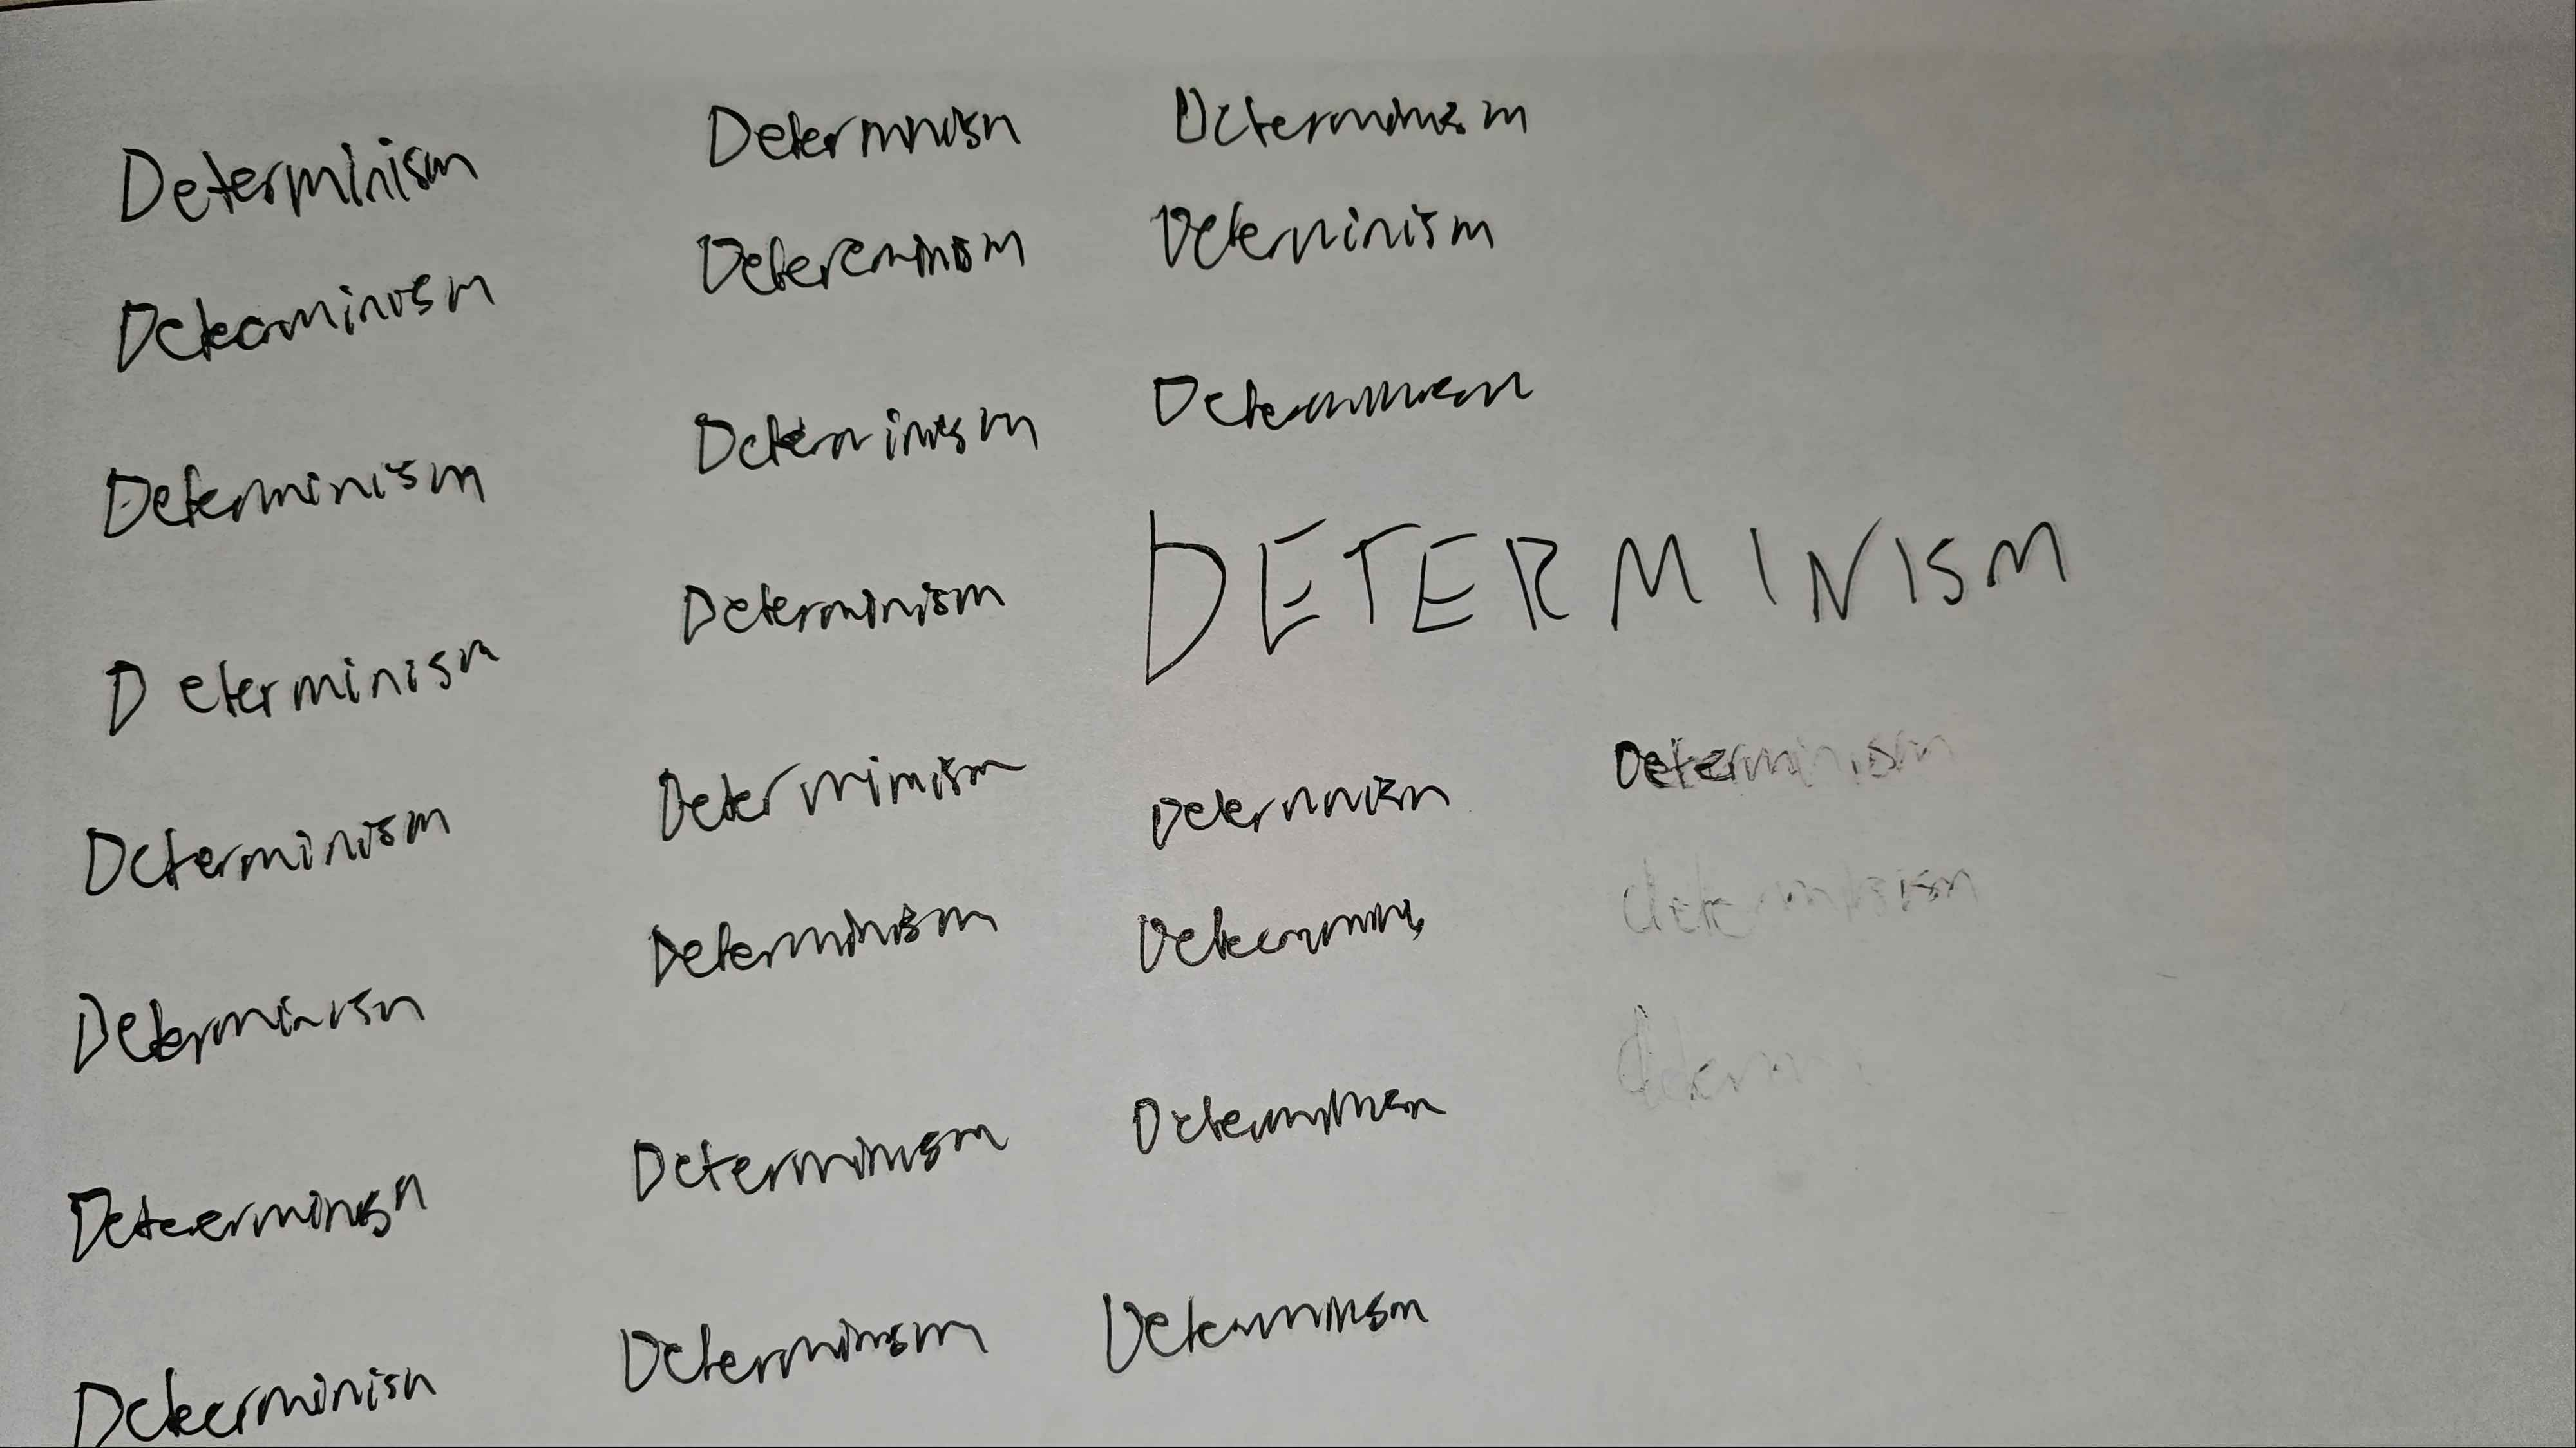 Determinism
Determinism
Determinism
Determinism
Determinism
Determinisn
Deteerminisn
Deteerminisn
Determnisn
Detereminism
Determinism
Determinism
Determimism
Determinism
Determinism
Determinism
Determinism
Deterninism
DETERMINISM
Determinism
determinism
determ